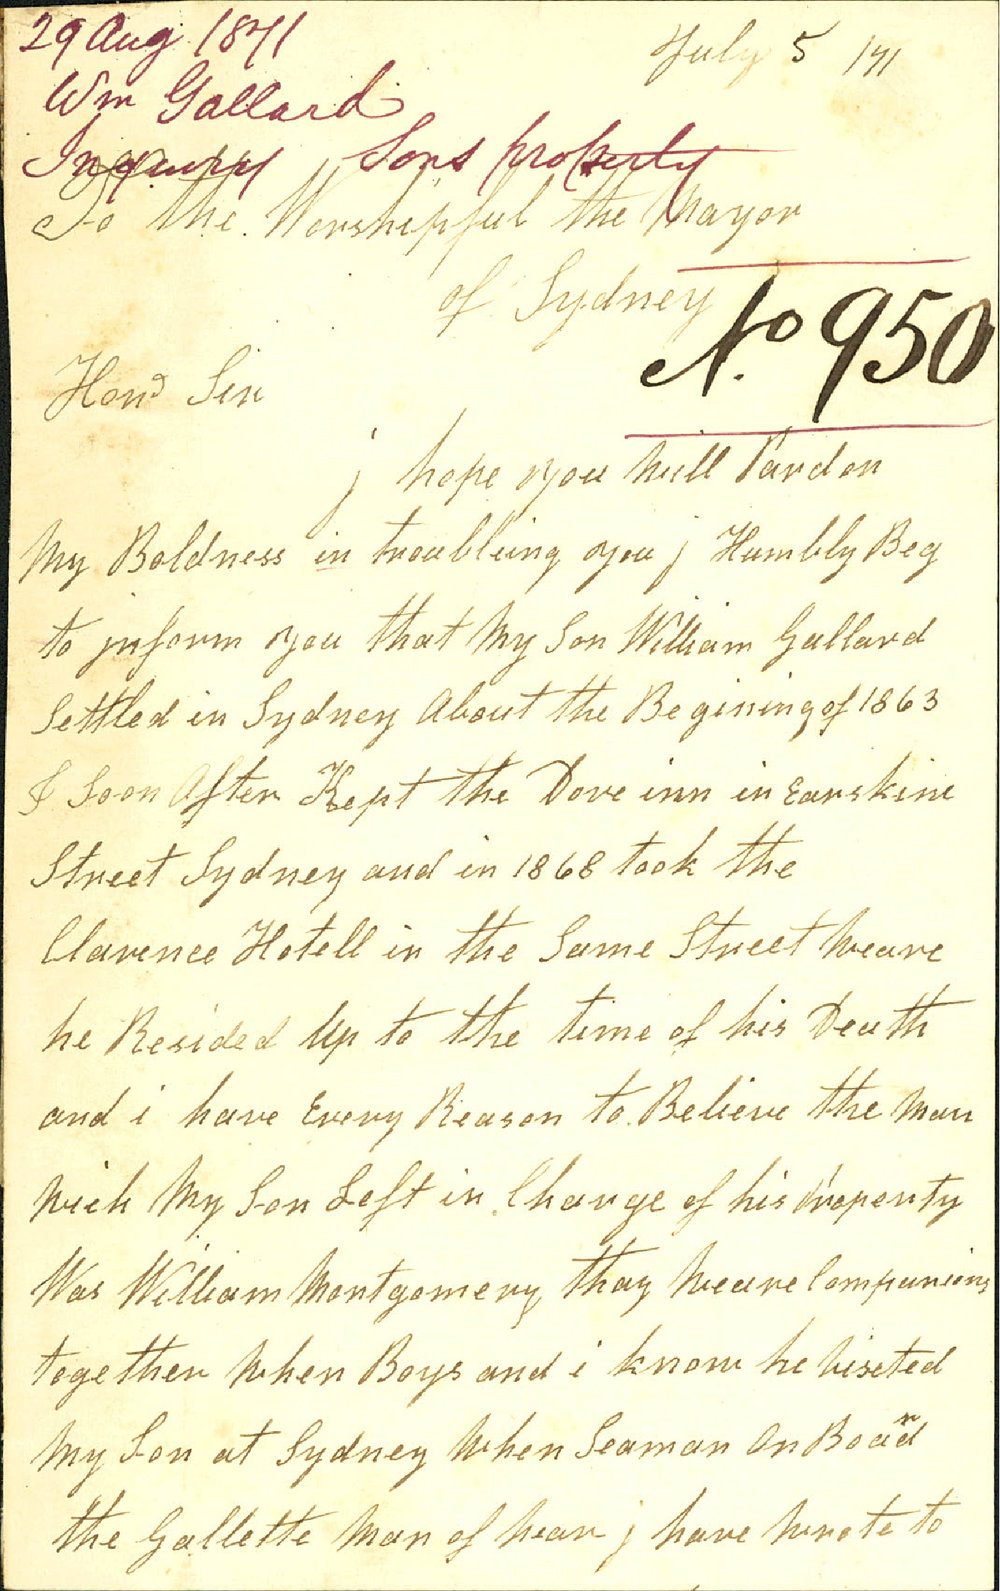 29 Aug 1871
July 5 /71
Wm Gallard
Inquiry Sons property
To the Worshipful the Mayor
of Sydney
No 950
Hond Sir
j hope you will Pardon
My Boldness in troubleing you j Humbly Beg
to jnform you that My Son William Gallard
Settled in Sydney About the Begining of 1863
& Soon After Kept the Dove inn in Earskine
Street Sydney and in 1868 took the
Clarence Hotell in the Same Street weare
he Resided Up to the time of his Death
and i have Every Reason to Believe the Man
wich My Son Left in Charge of his Property
Was William Montgomery thay weare Companions
together when Boys and i know he viseted
My Son at Sydney When Seaman On Board
the Gallette Man of wear j have wrote to